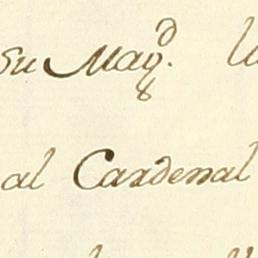 Su Magd.
al Cardenal